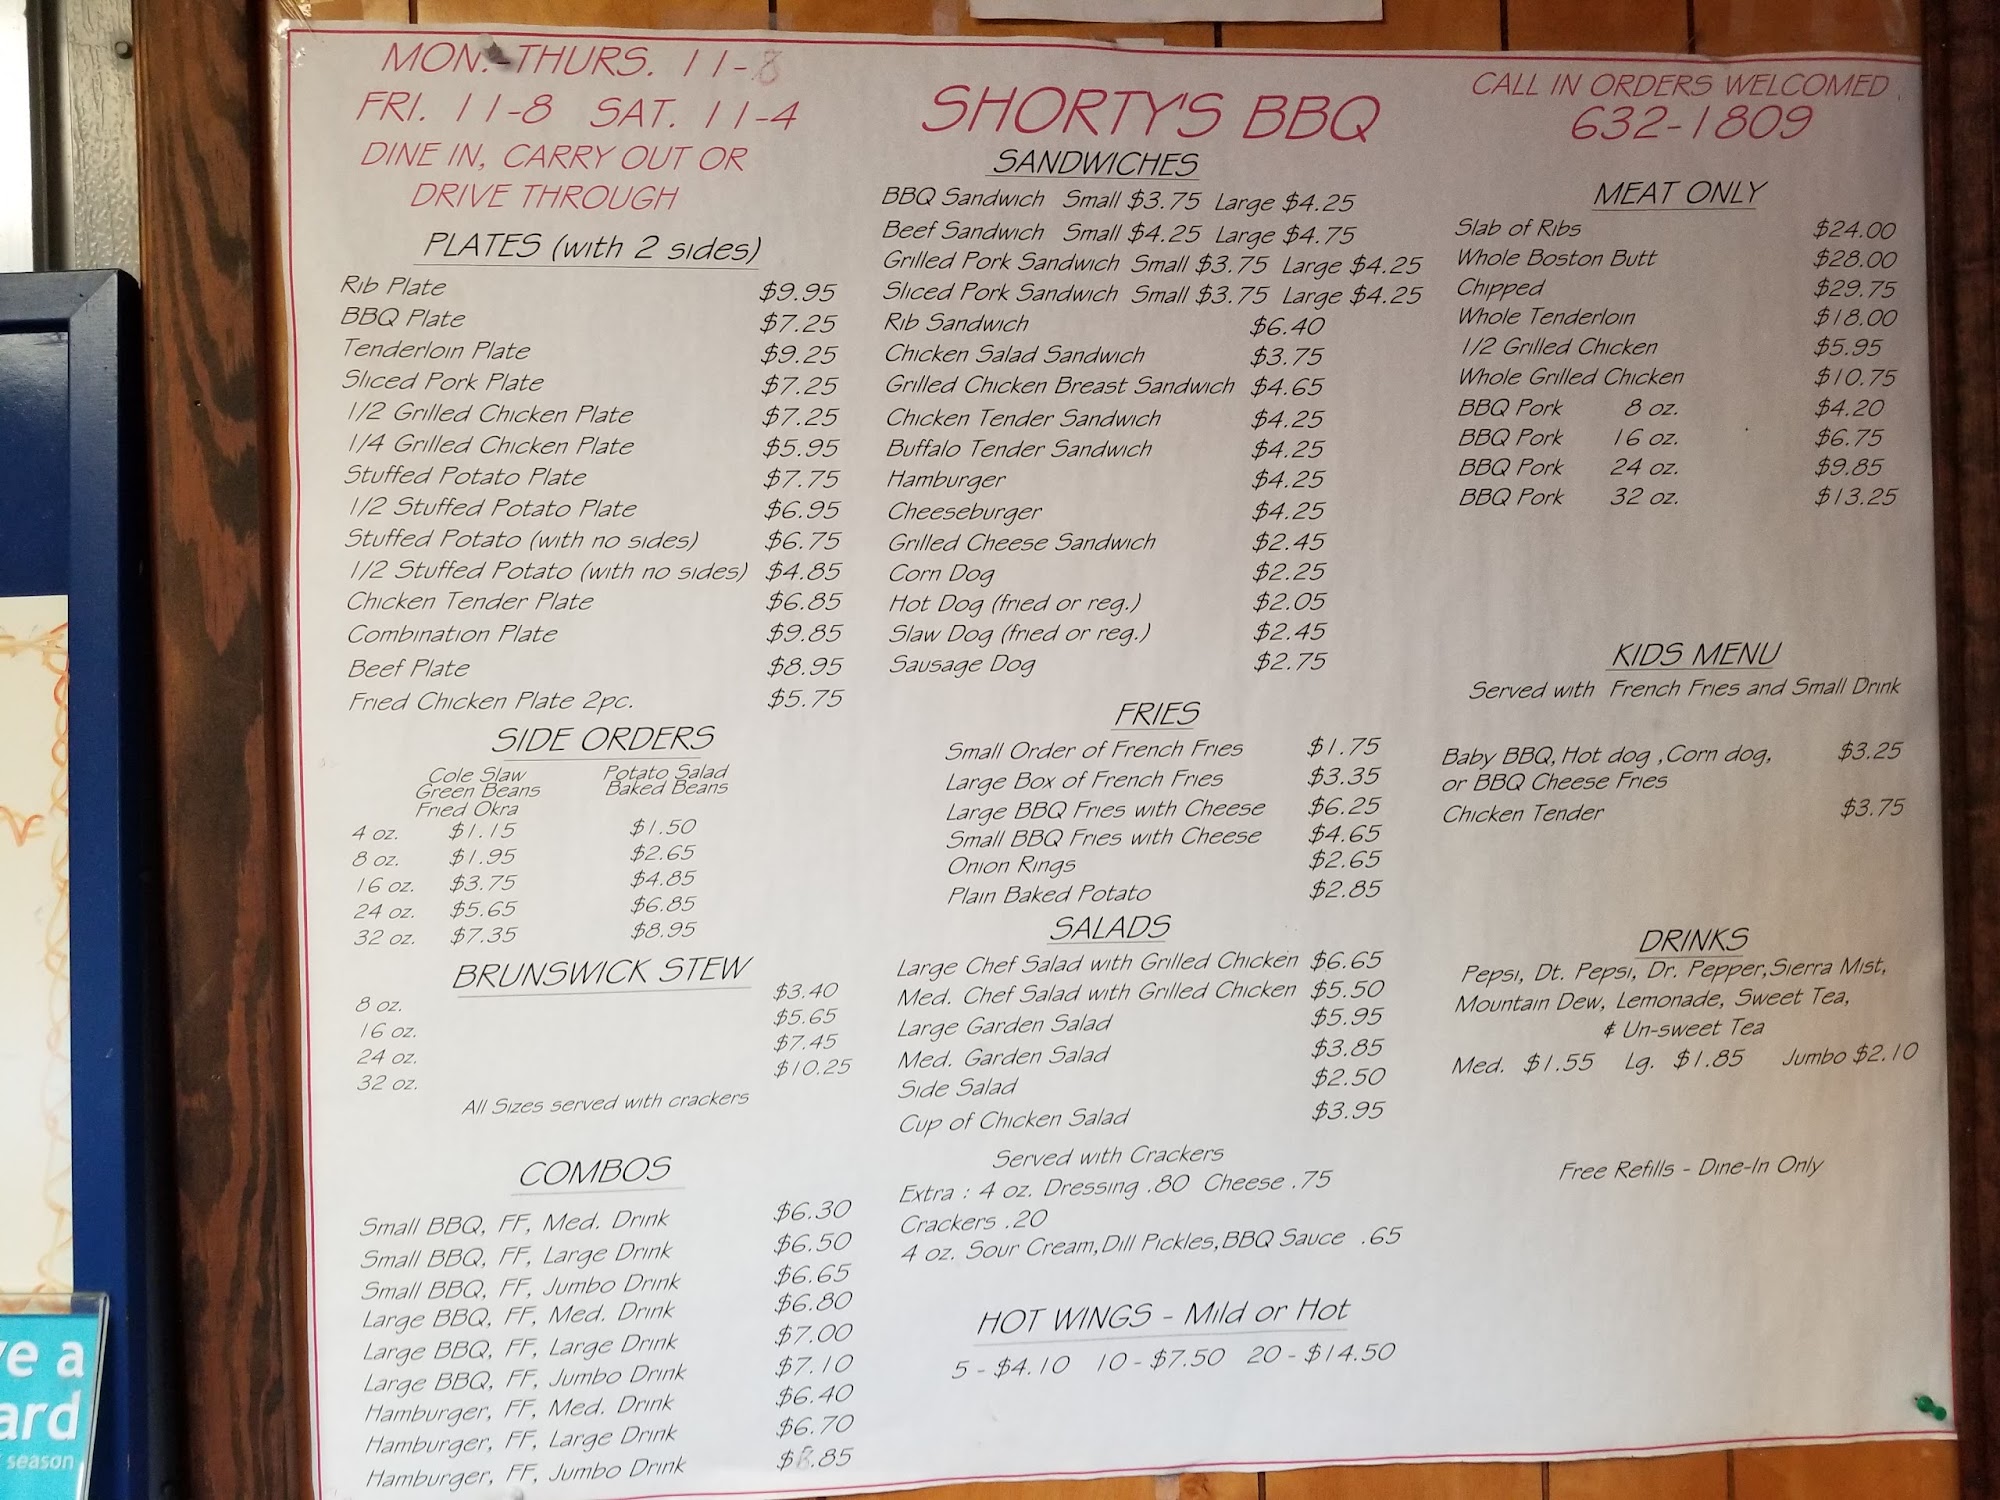 MON.-THURS. 11-8
FRI. 11-8 SAT. 11-4
DINE IN, CARRY OUT OR
DRIVE THROUGH
PLATES (with 2 sides)
Rib Plate $9.95
BBQ Plate $7.25
Tenderloin Plate $9.25
Sliced Pork Plate $7.25
1/2 Grilled Chicken Plate $7.25
1/4 Grilled Chicken Plate $5.95
Stuffed Potato Plate $7.75
1/2 Stuffed Potato Plate $6.95
Stuffed Potato (with no sides) $6.75
1/2 Stuffed Potato (with no sides) $4.85
Chicken Tender Plate $6.85
Combination Plate $9.85
Beef Plate $8.95
Fried Chicken Plate 2pc. $5.75
SIDE ORDERS
Cole Slaw Potato Salad
Green Beans Baked Beans
Fried Okra
4 oz. $1.15 $1.50
8 oz. $1.95 $2.65
16 oz. $3.75 $4.85
24 oz. $5.65 $6.85
32 oz. $7.35 $8.95
BRUNSWICK STEW
8 oz. $3.40
16 oz. $5.65
24 oz. $7.45
32 oz. $10.25
All Sizes served with crackers
COMBOS
Small BBQ, FF, Med. Drink $6.30
Small BBQ, FF, Large Drink $6.50
Small BBQ, FF, Jumbo Drink $6.65
Large BBQ, FF, Med. Drink $6.80
Large BBQ, FF, Large Drink $7.00
Large BBQ, FF, Jumbo Drink $7.10
Hamburger, FF, Med. Drink $6.40
Hamburger, FF, Large Drink $6.70
Hamburger, FF, Jumbo Drink
SHORTY'S BBQ
SANDWICHES
BBQ Sandwich Small $3.75 Large $4.25
Beef Sandwich Small $4.25 Large $4.75
Grilled Pork Sandwich Small $3.75 Large $4.25
Sliced Pork Sandwich Small $3.75 Large $4.25
Rib Sandwich $6.40
Chicken Salad Sandwich $3.75
Grilled Chicken Breast Sandwich $4.65
Chicken Tender Sandwich $4.25
Buffalo Tender Sandwich $4.25
Hamburger $4.25
Cheeseburger $4.25
Grilled Cheese Sandwich $2.45
Corn Dog $2.25
Hot Dog (fried or reg.) $2.05
Slaw Dog (fried or reg.) $2.45
Sausage Dog $2.75
FRIES
Small Order of French Fries $1.75
Large Box of French Fries $3.35
Large BBQ Fries with Cheese $6.25
Small BBQ Fries with Cheese $4.65
Onion Rings $2.65
Plain Baked Potato $2.85
SALADS
Large Chef Salad with Grilled Chicken $6.65
Med. Chef Salad with Grilled Chicken $5.50
Large Garden Salad $5.95
Med. Garden Salad $3.85
Side Salad $2.50
Cup of Chicken Salad $3.95
Served with Crackers
Extra : 4 oz. Dressing .80 Cheese .75
Crackers .20
4 oz. Sour Cream, Dill Pickles, BBQ Sauce .65
HOT WINGS - Mild or Hot
5 - $4.10 10 - $7.50 20 - $14.50
CALL IN ORDERS WELCOMED
632-1809
MEAT ONLY
Slab of Ribs $24.00
Whole Boston Butt $28.00
Chipped $29.75
Whole Tenderloin $18.00
1/2 Grilled Chicken $5.95
Whole Grilled Chicken $10.75
BBQ Pork 8 oz. $4.20
BBQ Pork 16 oz. $6.75
BBQ Pork 24 oz. $9.85
BBQ Pork 32 oz. $13.25
KIDS MENU
Served with French Fries and Small Drink
Baby BBQ, Hot dog ,Corn dog, $3.25
or BBQ Cheese Fries
Chicken Tender $3.75
DRINKS
Pepsi, Dt. Pepsi, Dr. Pepper, Sierra Mist,
Mountain Dew, Lemonade, Sweet Tea,
& Un-sweet Tea
Med. $1.55 Lg. $1.85 Jumbo $2.10
Free Refills - Dine-In Only
season